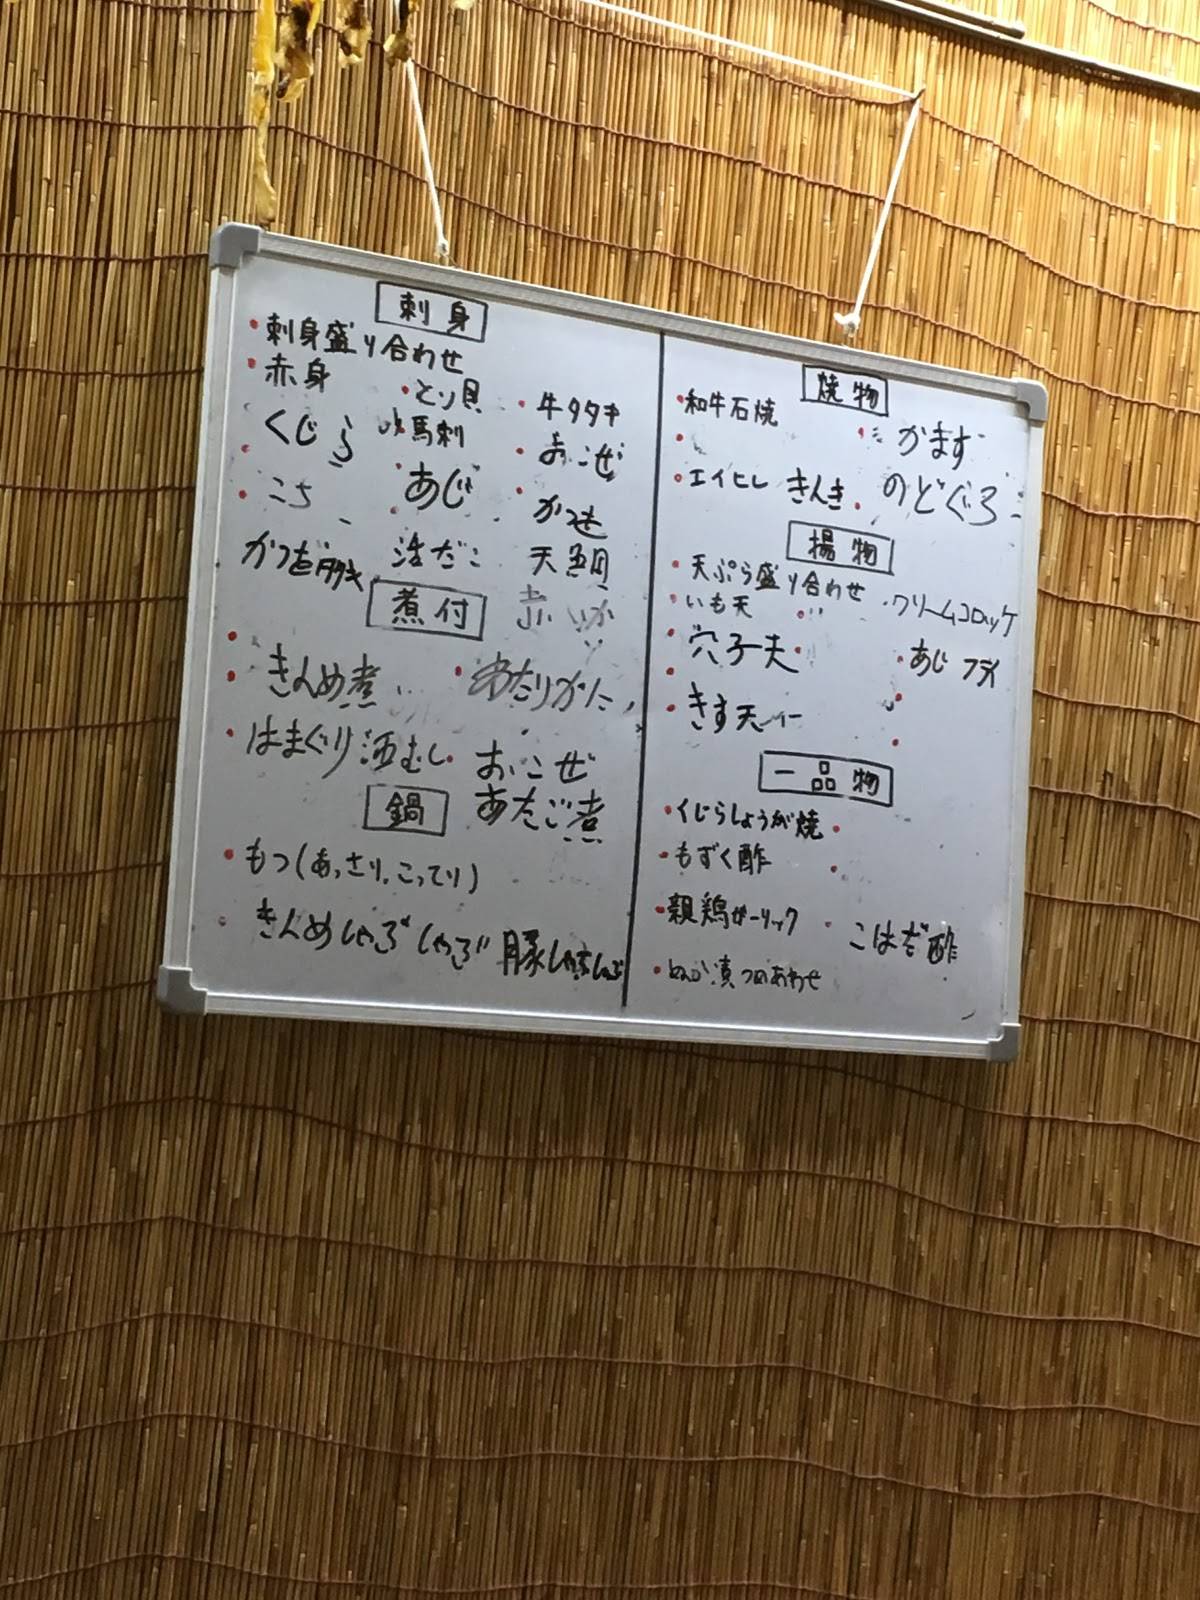 刺身
刺身盛り合わせ
赤身 とり貝 牛タタキ
くじら 馬刺 おこぜ
こち あじ かつを
活だこ 天鯛
煮付 赤いか
きんめ煮 わたりがに
はまぐり酒むし おこぜ
鍋 あたご煮
もつ(あっさり、こってり)
きんめしゃぶしゃぶ 豚しゃぶしゃぶ
焼物
和牛石焼 かます
エイヒレ きんき のどぐろ
揚物
天ぷら盛り合わせ クリームコロッケ
いも天
穴子天 あじフライ
きす天
一品物
くじらしょうが焼
もずく酢
親鶏ガーリック こはだ酢
漬つめあわせ